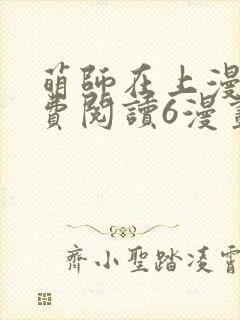 萌師在上漫
費閱讀6漫畫
齊小聖踏凌霄